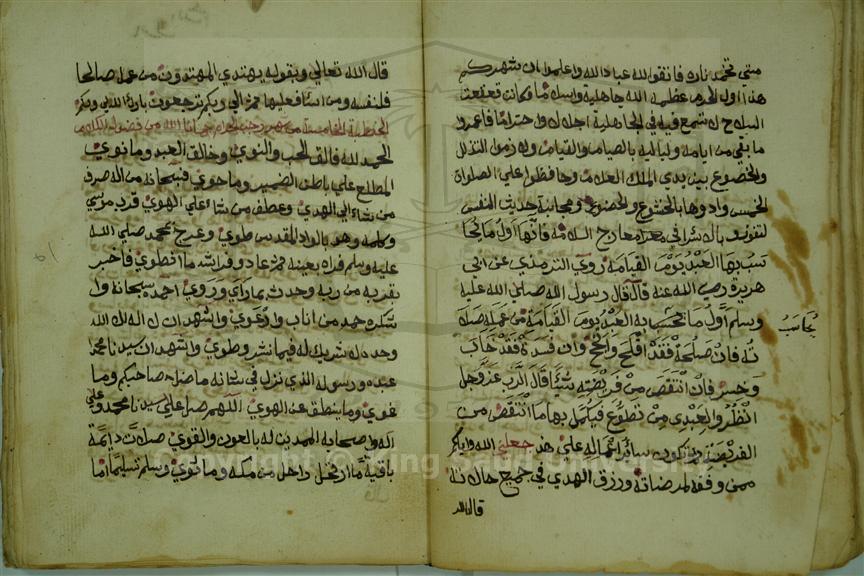 متي تخمد ناره فاتقوا الله عباد الله واعلموا ان شهركم
هذا اول الحرم عظمه الله جاهلية واسلاما وكانت قعقعة
السلاح لا تسمع فيه في الجاهلية اجلالا واحتراما فاعمروا
ما بقي من ايامه ولياليه بالصيام والقيام ولازموا التذلل
والخضوع بين يدي الملك العلام وحافظوا علي الصلوات
الخمس وادوها بالخشوع والحضور ومجانبة حديث النفس
لتفوزوا في معارج السلامة فانها اول ما يحا
سب بها العبد يوم القيامة روي الترمذي عن ابي
هريرة رضي الله عنه قال قال رسول الله صلي الله عليه
وسلم اول ما يحاسب به العبد يوم القيامة من عمله صلا
ته فان صلحت فقد افلح وانجح وان فسدت فقد خاب
وخسر فان انتقص من فريضته شيئا قال الرب عز وجل
انظروا لعبدي من تطوع فيكمل بها ما انتقص من
الفريضة ثم تكون سائر اعماله علي هذا جعلني الله واياكم
ممن وفقه لمرضاته ورزق الهدي في جميع حالاته
قال الله
يحاسب
قال الله تعالي وبقوله يهتدي المهتدون من عمل صالحا
فلنفسه ومن اسا فعليها ثم الي ربكم ترجعون بارك الله لي ولكم
الخطبة الخامسة من شهر رجب الحرام
الحمد لله فالق الحب والنوي وخالق العبد وما نوي
المطلع علي باطن الضمير وما حوي فسبحانه من اله صرف
من شاء الي الهدي وعطف من شاء علي الهوي قرب موسي
وكلمه وهو بالواد المقدس طوي وعرج بمحمد صلي الله
عليه وسلم فراه بعينه ثم عاد وفراشه ما انطوي فاخبر
بقربه من ربه وحدث بما راي وروي احمده سبحانه وا
شكره حمد من اناب وارعوي واشهد ان لا اله الا الله
وحده لا شريك له فيما نشر وطوي واشهد ان سيدنا محمدا
عبده ورسوله الذي نزل في شانه ما ضل صاحبكم وما
غوي وما ينطق عن الهوي اللهم صل علي سيدنا محمد وعلي
اله واصحابه الممدين له بالعون والقوي صلاة دايمة
باقية ما ارتحل راحل من مكة وما نوي وسلم تسليما اما